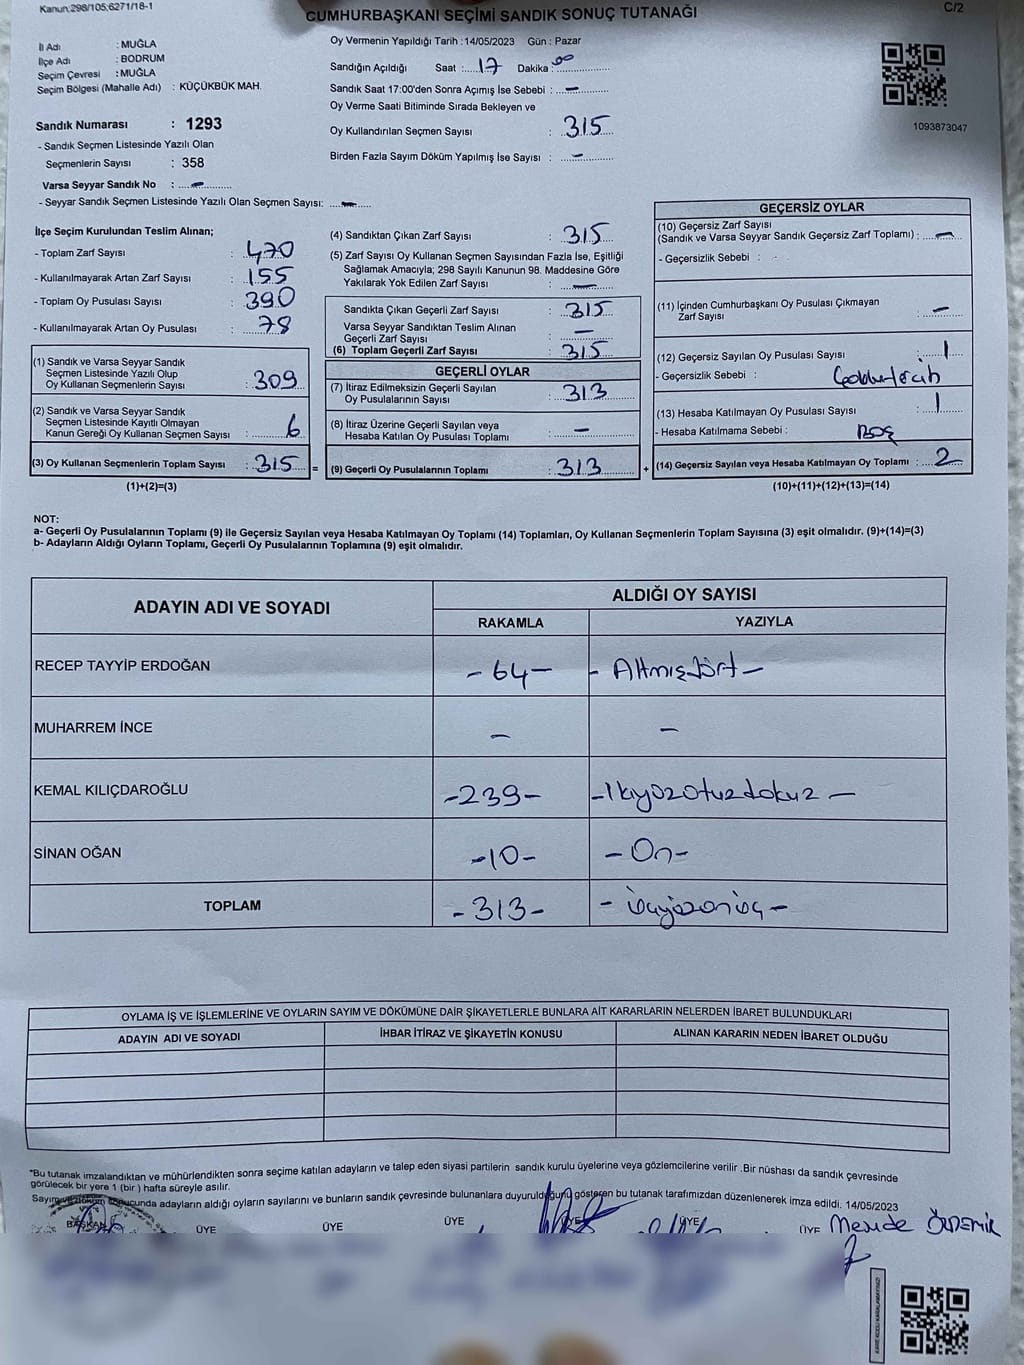 Kanun:298/105;6271/18-1
C/2
CUMHURBAŞKANI SEÇİMİ SANDIK SONUÇ TUTANAĞI
İl Adı : MUĞLA
İlçe Adı : BODRUM
Seçim Çevresi : MUĞLA
Seçim Bölgesi (Mahalle Adı) : KÜÇÜKBÜK MAH.
Sandık Numarası : 1293
- Sandık Seçmen Listesinde Yazılı Olan
Seçmenlerin Sayısı : 358
Varsa Seyyar Sandık No : -
- Seyyar Sandık Seçmen Listesinde Yazılı Olan Seçmen Sayısı: -
Oy Vermenin Yapıldığı Tarih : 14/05/2023 Gün : Pazar
Sandığın Açıldığı Saat : 17 Dakika : 00
Sandık Saat 17:00'den Sonra Açımış İse Sebebi : -
Oy Verme Saati Bitiminde Sırada Bekleyen ve
Oy Kullandırılan Seçmen Sayısı : 315
Birden Fazla Sayım Döküm Yapılmış İse Sayısı : -
1093873047
İlçe Seçim Kurulundan Teslim Alınan;
- Toplam Zarf Sayısı : 470
- Kullanılmayarak Artan Zarf Sayısı : 155
- Toplam Oy Pusulası Sayısı : 390
- Kullanılmayarak Artan Oy Pusulası : 78
(1) Sandık ve Varsa Seyyar Sandık
Seçmen Listesinde Yazılı Olup
Oy Kullanan Seçmenlerin Sayısı : 309
(2) Sandık ve Varsa Seyyar Sandık
Seçmen Listesinde Kayıtlı Olmayan
Kanun Gereği Oy Kullanan Seçmen Sayısı : 6
(3) Oy Kullanan Seçmenlerin Toplam Sayısı : 315 =
(1)+(2)=(3)
(4) Sandıktan Çıkan Zarf Sayısı : 315
(5) Zarf Sayısı Oy Kullanan Seçmen Sayısından Fazla İse, Eşitliği
Sağlamak Amacıyla; 298 Sayılı Kanunun 98. Maddesine Göre
Yakılarak Yok Edilen Zarf Sayısı : -
Sandıkta Çıkan Geçerli Zarf Sayısı : 315
Varsa Seyyar Sandıktan Teslim Alınan
Geçerli Zarf Sayısı : -
(6) Toplam Geçerli Zarf Sayısı : 315
GEÇERLİ OYLAR
(7) İtiraz Edilmeksizin Geçerli Sayılan
Oy Pusulalarının Sayısı : 313
(8) İtiraz Üzerine Geçerli Sayılan veya
Hesaba Katılan Oy Pusulası Toplamı : -
(9) Geçerli Oy Pusulalarının Toplamı : 313 +
GEÇERSİZ OYLAR
(10) Geçersiz Zarf Sayısı
(Sandık ve Varsa Seyyar Sandık Geçersiz Zarf Toplamı) : -
- Geçersizlik Sebebi :
(11) İçinden Cumhurbaşkanı Oy Pusulası Çıkmayan
Zarf Sayısı : -
(12) Geçersiz Sayılan Oy Pusulası Sayısı : 1
- Geçersizlik Sebebi :
(13) Hesaba Katılmayan Oy Pusulası Sayısı : 1
- Hesaba Katılmama Sebebi : Boş
(14) Geçersiz Sayılan veya Hesaba Katılmayan Oy Toplamı : 2
(10)+(11)+(12)+(13)=(14)
NOT:
a- Geçerli Oy Pusulalarının Toplamı (9) ile Geçersiz Sayılan veya Hesaba Katılmayan Oy Toplamı (14) Toplamları, Oy Kullanan Seçmenlerin Toplam Sayısına (3) eşit olmalıdır. (9)+(14)=(3)
b- Adayların Aldığı Oyların Toplamı, Geçerli Oy Pusulalarının Toplamına (9) eşit olmalıdır.
ADAYIN ADI VE SOYADI
ALDIĞI OY SAYISI
RAKAMLA YAZIYLA
RECEP TAYYİP ERDOĞAN -64- - Altmışdört -
MUHARREM İNCE - -
KEMAL KILIÇDAROĞLU -239- - İkiyüzotuzdokuz -
SİNAN OĞAN -10- - On -
TOPLAM -313- - üçyüzonüç -
OYLAMA İŞ VE İŞLEMLERİNE VE OYLARIN SAYIM VE DÖKÜMÜNE DAİR ŞİKAYETLERLE BUNLARA AİT KARARLARIN NELERDEN İBARET BULUNDUKLARI
ADAYIN ADI VE SOYADI İHBAR İTİRAZ VE ŞİKAYETİN KONUSU ALINAN KARARIN NEDEN İBARET OLDUĞU
"Bu tutanak imzalandıktan ve mühürlendikten sonra seçime katılan adayların ve talep eden siyasi partilerin sandık kurulu üyelerine veya gözlemcilerine verilir .Bir nüshası da sandık çevresinde
görülecek bir yere 1 (bir ) hafta süreyle asılır.
Sayım ve döküm sonucunda adayların aldığı oyların sayılarını ve bunların sandık çevresinde bulunanlara duyurulduğunu gösteren bu tutanak tarafımızdan düzenlenerek imza edildi. 14/05/2023
BAŞKAN ÜYE ÜYE ÜYE ÜYE ÜYE ÜYE